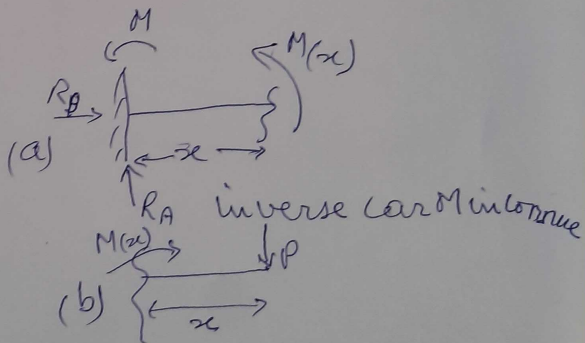 M
M(x)
R_B
(a)
x
R_A inverse car M inconnue
M(x)
P
(b)
x